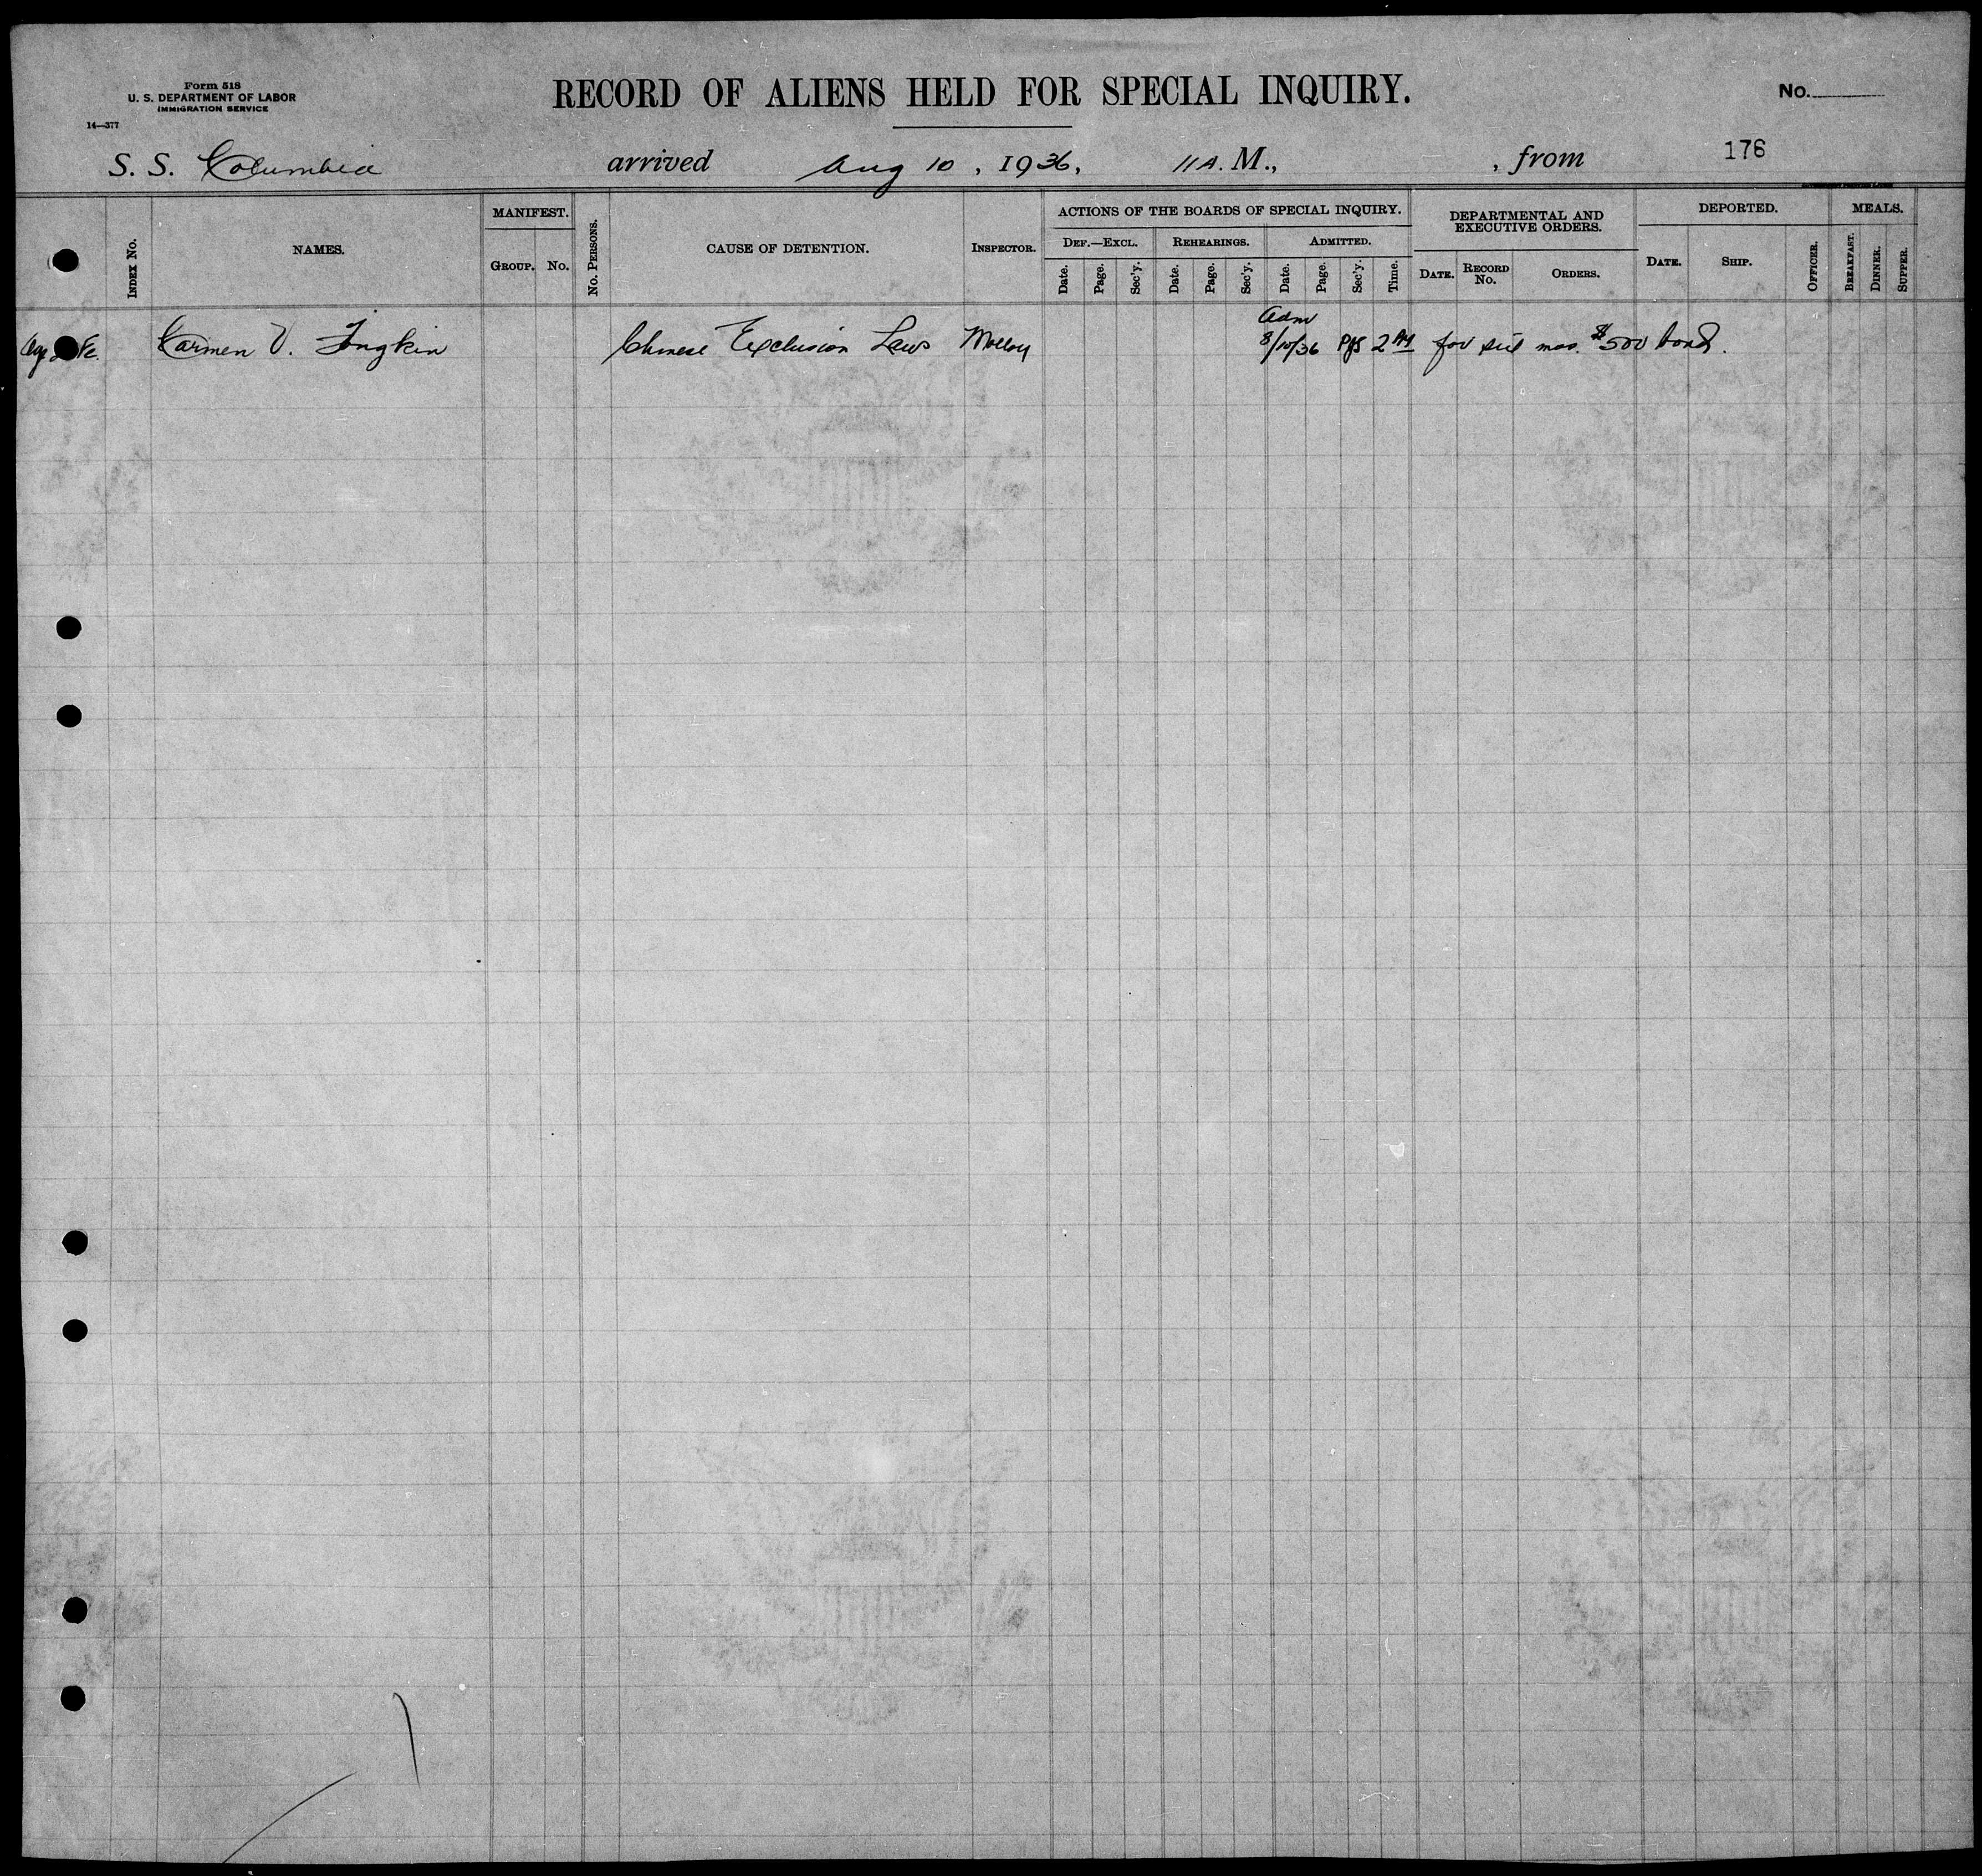 Form 518
U. S. DEPARTMENT OF LABOR
IMMIGRATION SERVICE
14—377
RECORD OF ALIENS HELD FOR SPECIAL INQUIRY.
No.
S. S. Columbia arrived Aug 10, 1936, 11 A. M., , from 176
INDEX No.
NAMES.
MANIFEST.
GROUP. No.
No. PERSONS.
CAUSE OF DETENTION.
INSPECTOR.
ACTIONS OF THE BOARDS OF SPECIAL INQUIRY.
DEF.—EXCL. REHEARINGS. ADMITTED.
Date. Page. Sec'y. Date. Page. Sec'y. Date. Page. Sec'y. Time.
DEPARTMENTAL AND
EXECUTIVE ORDERS.
DATE. RECORD No. ORDERS.
DEPORTED.
DATE. SHIP. OFFICER.
MEALS.
BREAKFAST. DINNER. SUPPER.
Adm
Age Fe. Carmen V. Tongkin Chinese Exclusion Laws 8/10/36 2 PM for six mos. $500 bond.